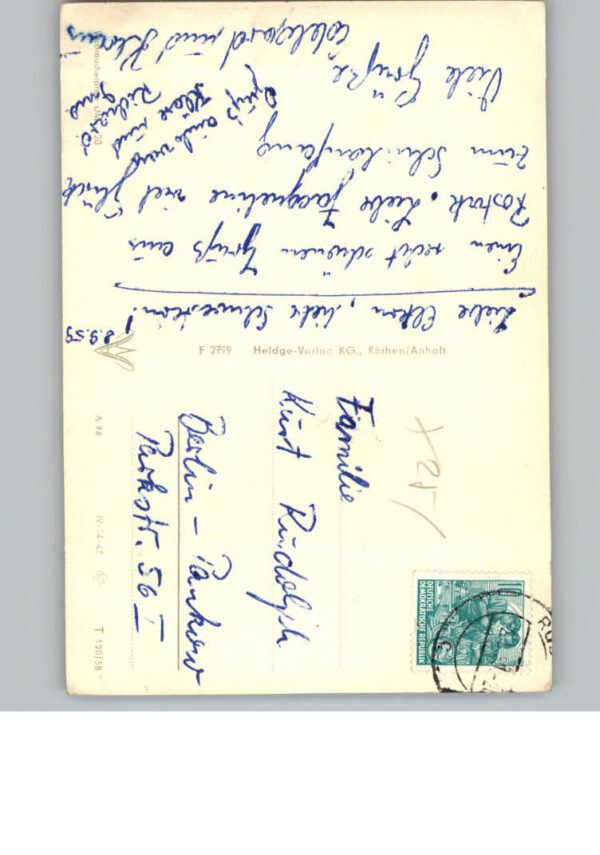 8.9.59
Liebe Eltern, liebe Schwestern!
Einen recht schönen Gruß aus
Rostock. Liebe Jacqueline viel Glück
zum Schulanfang
Viele Grüße
und Klaus
Gruß auch von
Kläre und
Richard
F 2799 Heldge-Verlag KG., Köthen/Anhalt
Familie
Kurt Rudolph
Berlin - Pankow
Parkstr. 56 I
DEUTSCHE
DEMOKRATISCHE REPUBLIK
A 78
IV-14-45
T 120/58